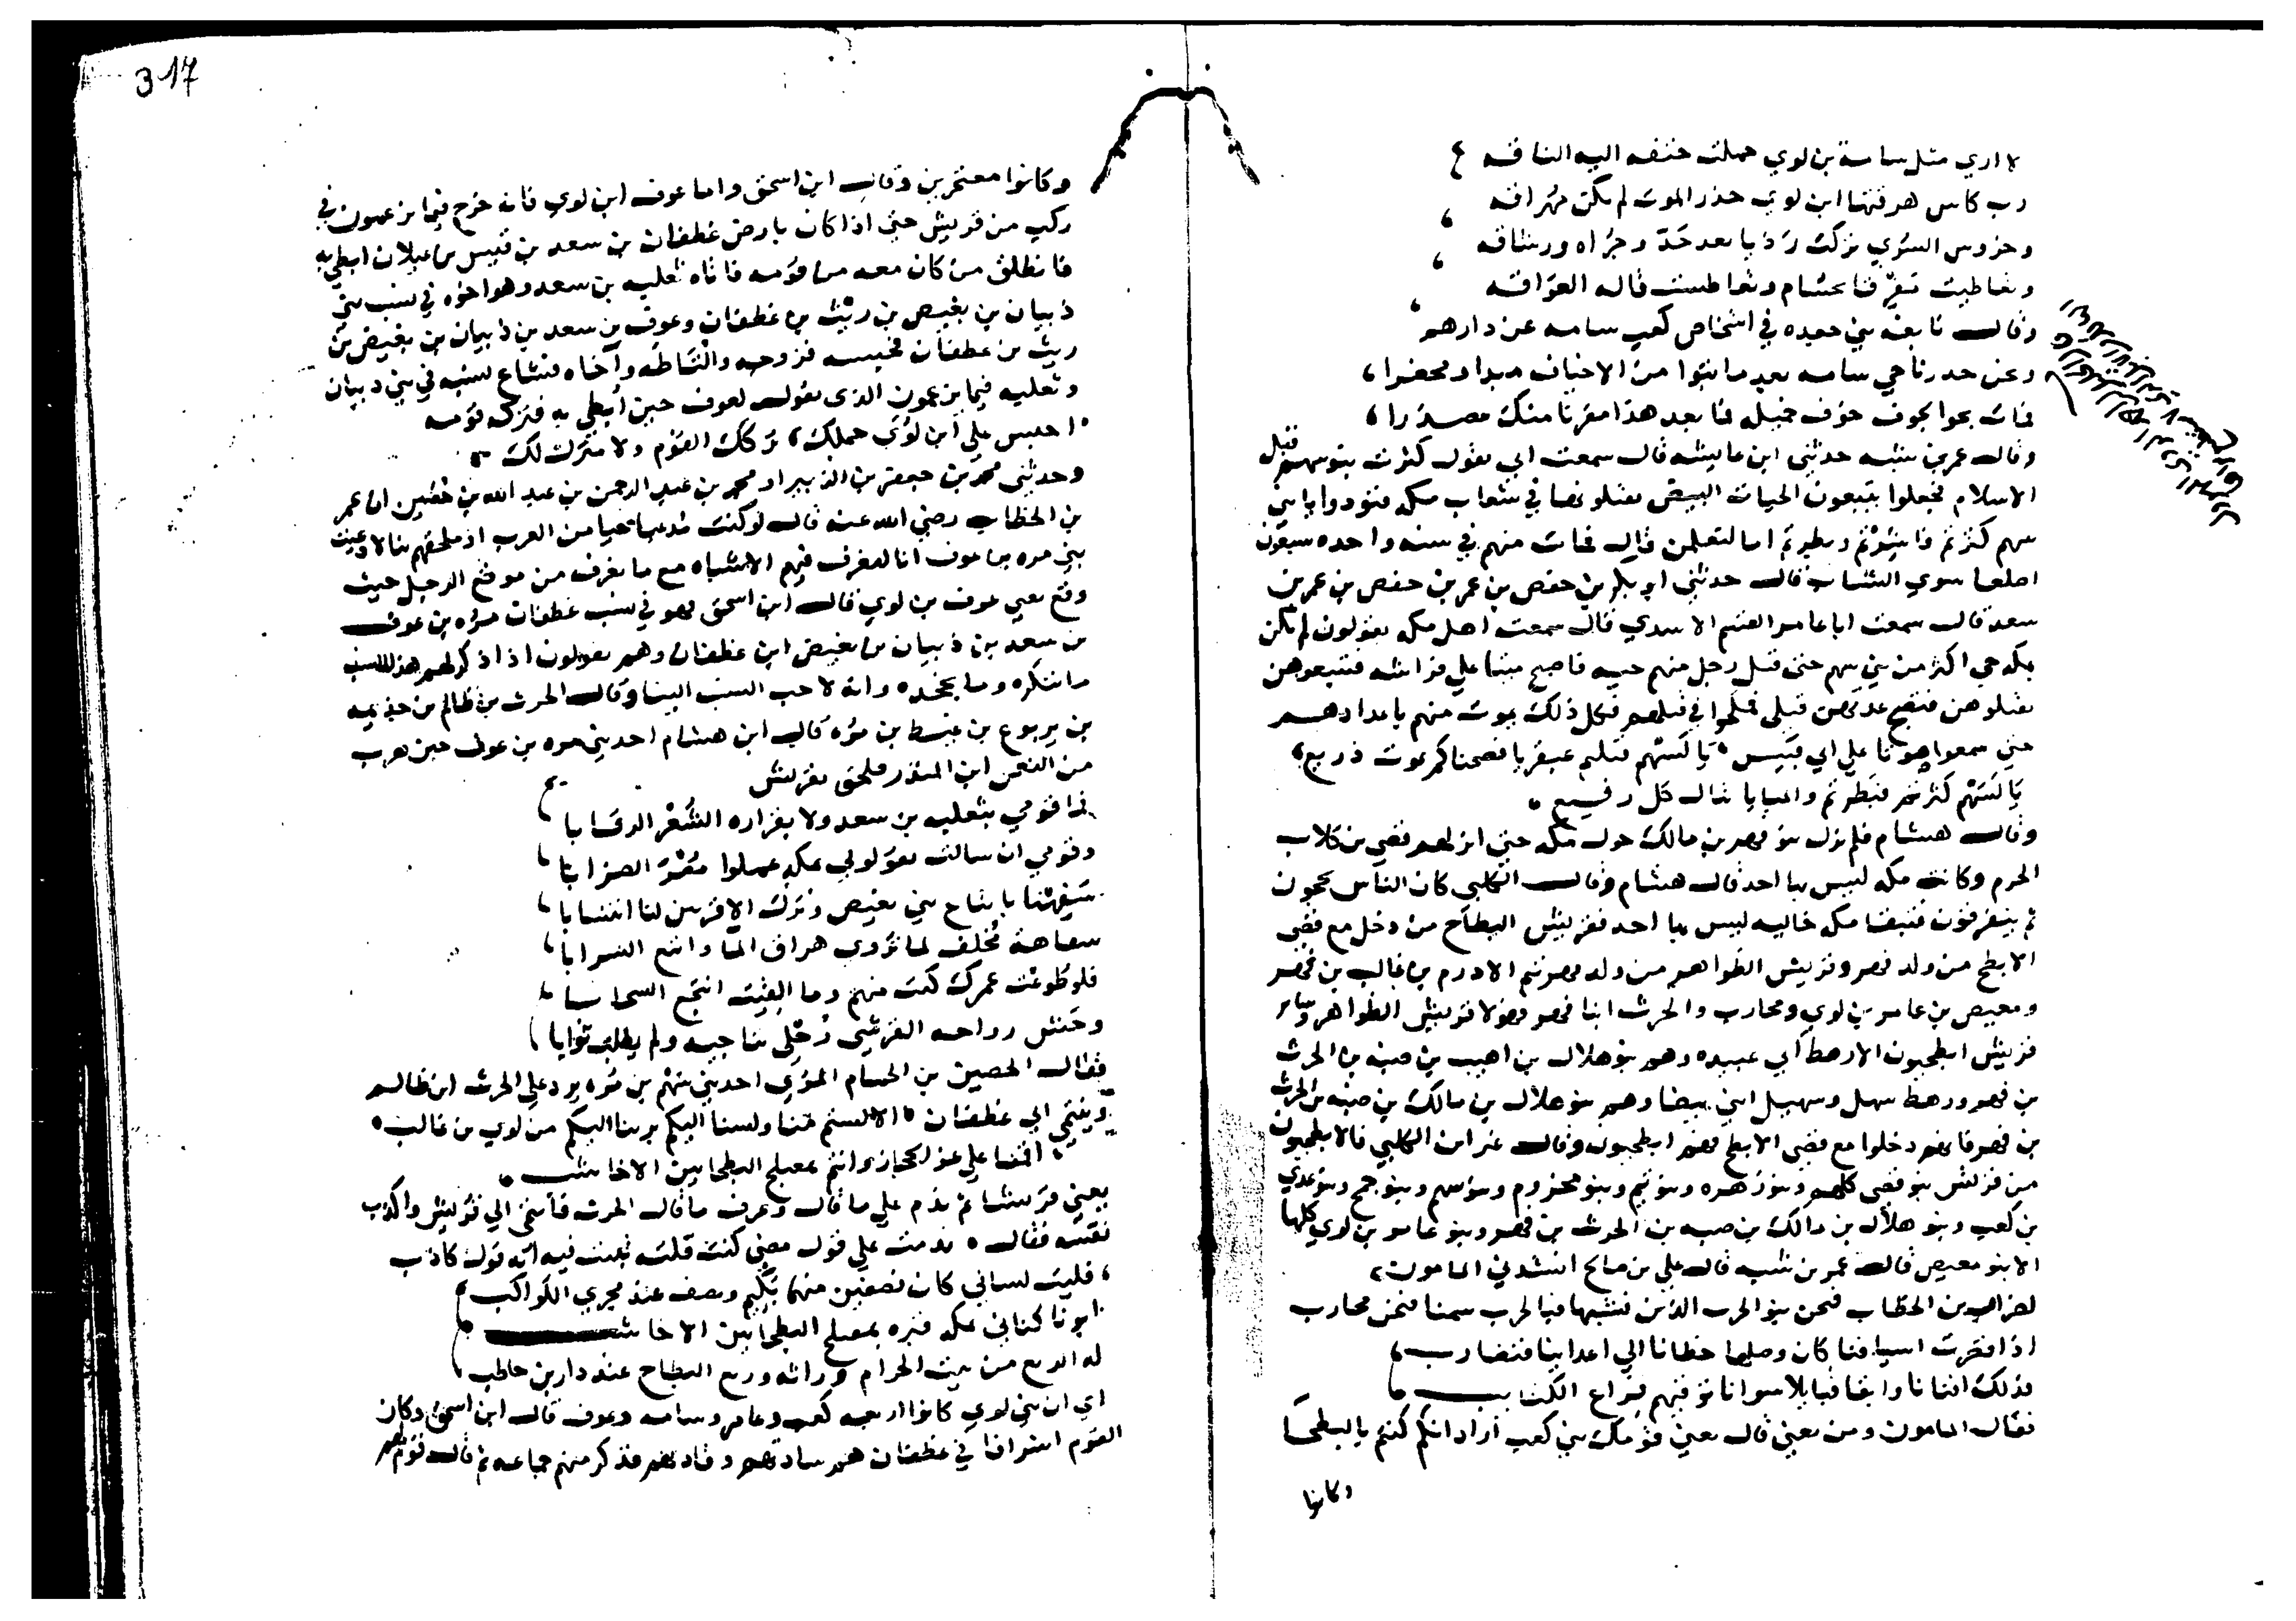 لا ارى مثل سامة بن لوي حملت حتفه اليه الناقه
رب كاس هرقتها ابن لوي حذر الموت لم يكن مهراقه
وخروس السري تركت رذيا بعد جد وجراه ورشاقه
وتعاطيت مفرقا بحسام وتعاطيت قاله العواقه
وقال نابغه بني جعده في اشخاص كعب سامه عن دارهم
ونحن حدرنا حي سامه بعد ما ابنوا من الاحياف مبدا ومحضرا
وقال عمر بن شبه حدثني ابن عايشه قال سمعت ابي يقول كثرت بنو سهم قبل
الاسلام فجعلوا يتبعون الحيات البيض يقتلونها في شعاب مكه فنودوا يا بني
سهم كثرتم فاشرتم وبطرتم اما لتعلمن قال فمات منهم في سنه واحده سبعون
اصلعا سوي الشباب قال حدثني ابو بكر بن حفص بن عمر بن حفص بن عمر بن
سعد قال سمعت ابا عامر الاسدي قال سمعت اهل مكه يقولون لم يكن
بمكه حي اكثر من بني سهم حتى قتل رجل منهم حيه فاصبح ميتا علي فراشه فتتبعوهن
يقتلوهن فتصبح عدتهن قتلى فكل ذلك يموت منهم باعدادهم
حتى سمعوا صوتا علي ابي قبيس يا لسهم قتلتم عبقريا فصحناكم بموت ذريع
يا لسهم كثرتم فبطرتم والمنايا تنال كل رفيع
وقال هشام فلم تزل بنو فهر بن مالك حول مكه حتى انزلهم قصي بن كلاب
الحرم وكانت مكه ليس بها احد قال هشام وقال الكلبي كان الناس يحجون
ثم يتفرقون فتبقا مكه خاليه ليس بها احد فقريش البطاح من دخل مع قصي
الابطح من ولد فهر وقريش الظواهر من ولد فهر تيم الادرم بن غالب بن فهر
ومعيص بن عامر بن لوي ومحارب والحرث ابنا فهر فهولا قريش الظواهر وساير
قريش ابطحيون الا رهط ابي عبيده وهم بنو هلال بن اهيب بن ضبه بن الحرث
بن فهر ورهط سهل وسهيل ابني بيضا وهم بنو هلال بن مالك بن ضبه بن الحرث
بن فهر فانهم دخلوا مع قصي الابطح فهم ابطحيون وقال غير ابن الكلبي فالابطحيون
من قريش بنو قصي كلهم وبنو زهره وبنو تيم وبنو مخزوم وبنو سهم وبنو جمح وبنو عدي
بن كعب وبنو هلال بن مالك بن ضبه بن الحرث بن فهر وبنو عامر بن لوي كلها
الا بنو معيص قال عمر بن شبه قال علي بن صالح انشدني المامون
لضرار بن الخطاب فنحن بنو الحرب الذين نشبها فبالحرب سمنا فنحن محارب
اذا قصرت اسيافنا كان وصلها خطانا الي اعداينا فنضارب
فذلك افنانا وابقا قبايلا سوانا توقيهم قراع الكتايب
فقال المامون ومن يعني قال يعني قومك بني كعب اراد انكم كنتم بالبطحا
وكانوا
317
وكانوا معتمرين وقال ابن اسحق واما عوف ابن لوي فانه خرج فيما يزعمون في
ركب من قريش حتى اذا كان بارض غطفان بن سعد بن قيس بن عيلان ابطي به
فانطلق من كان معه من قومه فاتاه ثعلبه بن سعد وهو اخوه في نسب بني
ذبيان بن بغيض بن ريث بن غطفان وعوف بن سعد بن ذبيان بن بغيض بن
ريث بن غطفان فحبسه فزوجه والتاطه وآخاه فشاع نسبه في بني ذبيان
وثعلبه فيما يزعمون الذي يقول لعوف حين ابطي به فتركه قومه
احبس علي ابن لوي جملك تركك القوم ولا مترك لك
وحدثني محمد بن جعفر بن الزبير او محمد بن عبد الرحمن بن عبد الله بن حصين ان عمر
بن الخطاب رضي الله عنه قال لو كنت مدعيا حيا من العرب او ملحقهم بنا لادعيت
بني مره بن عوف انا لنعرف فيهم الاشباه مع ما نعرف من موقع الرجل حيث
وقع يعني عوف بن لوي قال ابن اسحق فهو في نسب غطفان مره بن عوف
بن سعد بن ذبيان بن بغيض ابن غطفان وهم يقولون اذا ذكر لهم هذا النسب
ما ننكره وما نجحده وانه لاحب النسب الينا وقال الحرث بن ظالم بن جذيمه
بن يربوع بن غيظ بن مره قال ابن هشام احد بني مره بن عوف حين هرب
من النعمن ابن المنذر فلحق بقريش
فما قومي بثعلبه بن سعد ولا بفزاره الشعر الرقابا
وقومي ان سالت بنو لوي بمكه علموا مضر الضرابا
سفهنا باتباع بني بغيض وترك الاقربين لنا انتسابا
سفاهة مخلف لما تروى هراق الما واتبع السرابا
فلو طوعت عمرك كنت منهم وما الفيت انتجع السحابا
وخش رواحه القرشي رحلي بناجيه ولم يطلب ثوابا
فقال الحصين بن الحمام المري احد بني سهم بن مره يرد علي الحرث ابن ظالم
وينتمي الي غطفان الا لستم منا ولسنا اليكم برينا اليكم من لوي بن غالب
اقمنا علي عز الحجاز وانتم بمعتلج البطحا بين الاخاشب
يعني قريشا ثم ندم علي ما قال وعرف ما قال الحرث فانتمى الي قريش واكذب
نفسه فقال ندمت علي قول مضى كنت قلته تبينت فيه انه قول كاذب
فليت لساني كان نصفين منهما بكيم ونصف عند مجري الكواكب
ابونا كناني بمكه قبره بمعتلج البطحا بين الاخاشب
له الربع من بيت الحرام وراثه وربع البطاح عند دار بن حاطب
اي ان بني لوي كانوا اربعه كعب وعامر وسامه وعوف قال ابن اسحق وكان
القوم اشرافا في غطفان هم سادتهم وقادتهم فذكر منهم جماعه ثم قال قوم لهم